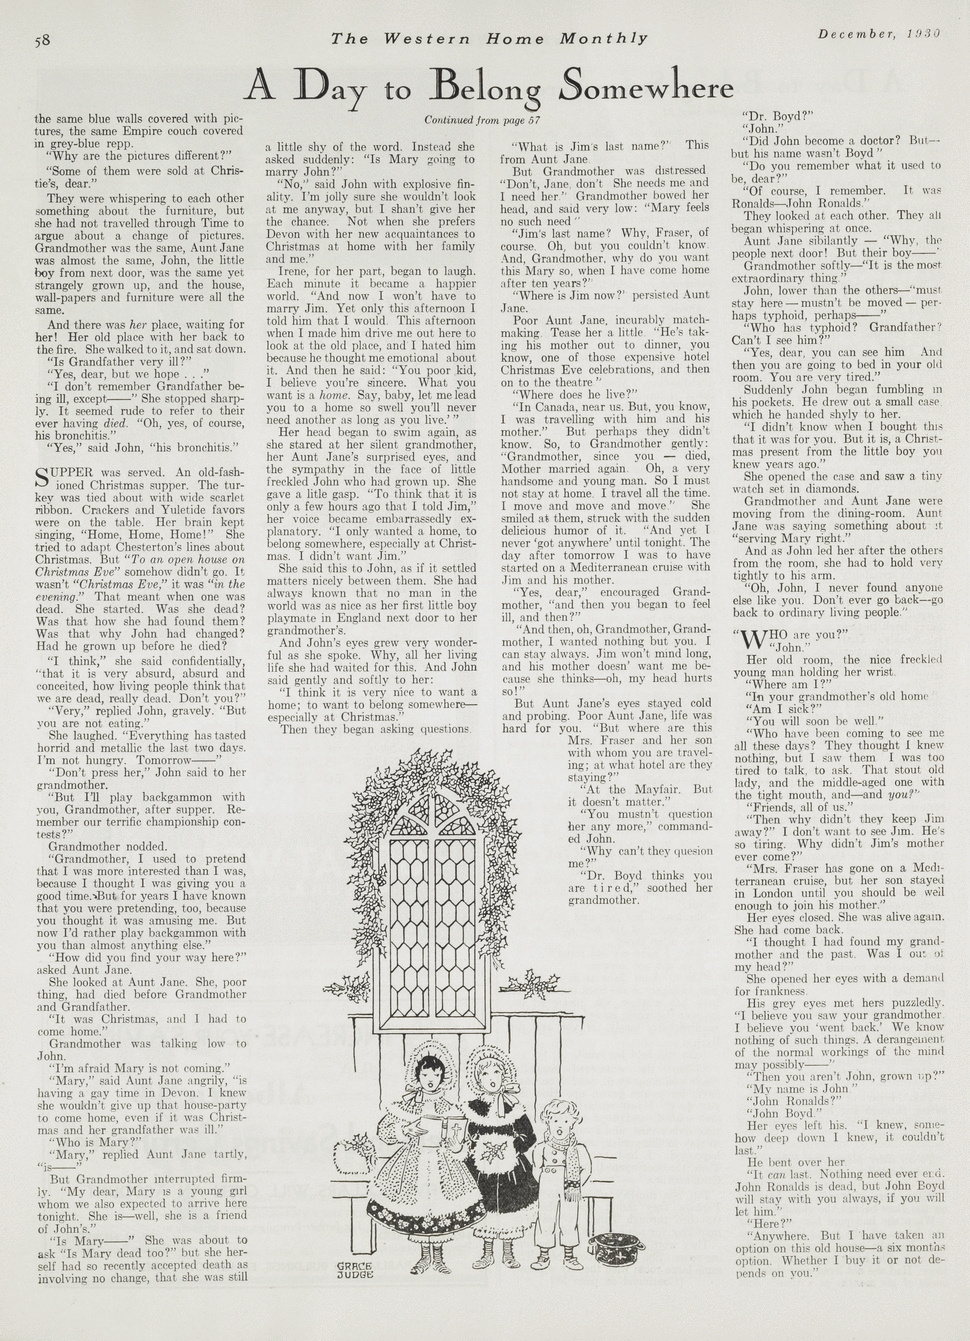 58
The Western Home Monthly
December, 1930
A Day to Belong Somewhere
Continued from page 57
the same blue walls covered with pic-
tures, the same Empire couch covered
in grey-blue repp.
"Why are the pictures different?"
"Some of them were sold at Chris-
tie's, dear."
They were whispering to each other
something about the furniture, but
she had not travelled through Time to
argue about a change of pictures.
Grandmother was the same, Aunt Jane
was almost the same, John, the little
boy from next door, was the same yet
strangely grown up, and the house,
wall-papers and furniture were all the
same.
And there was her place, waiting for
her! Her old place with her back to
the fire. She walked to it, and sat down.
"Is Grandfather very ill?"
"Yes, dear, but we hope . . ."
"I don't remember Grandfather be-
ing ill, except——" She stopped sharp-
ly. It seemed rude to refer to their
ever having died. "Oh, yes, of course,
his bronchitis."
"Yes," said John, "his bronchitis."
SUPPER was served. An old-fash-
ioned Christmas supper. The tur-
key was tied about with wide scarlet
ribbon. Crackers and Yuletide favors
were on the table. Her brain kept
singing, "Home, Home, Home!" She
tried to adapt Chesterton's lines about
Christmas. But "To an open house on
Christmas Eve" somehow didn't go. It
wasn't "Christmas Eve," it was "in the
evening." That meant when one was
dead. She started. Was she dead?
Was that how she had found them?
Was that why John had changed?
Had he grown up before he died?
"I think," she said confidentially,
"that it is very absurd, absurd and
conceited, how living people think that
we are dead, really dead. Don't you?"
"Very," replied John, gravely. "But
you are not eating."
She laughed. "Everything has tasted
horrid and metallic the last two days.
I'm not hungry. Tomorrow——"
"Don't press her," John said to her
grandmother.
"But I'll play backgammon with
you, Grandmother, after supper. Re-
member our terrific championship con-
tests?"
Grandmother nodded.
"Grandmother, I used to pretend
that I was more interested than I was,
because I thought I was giving you a
good time. But for years I have known
that you were pretending, too, because
you thought it was amusing me. But
now I'd rather play backgammon with
you than almost anything else."
"How did you find your way here?"
asked Aunt Jane.
She looked at Aunt Jane. She, poor
thing, had died before Grandmother
and Grandfather.
"It was Christmas, and I had to
come home."
Grandmother was talking low to
John.
"I'm afraid Mary is not coming."
"Mary," said Aunt Jane angrily, "is
having a gay time in Devon. I knew
she wouldn't give up that house-party
to come home, even if it was Christ-
mas and her grandfather was ill."
"Who is Mary?"
"Mary," replied Aunt Jane tartly,
"is——"
But Grandmother interrupted firm-
ly. "My dear, Mary is a young girl
whom we also expected to arrive here
tonight. She is—well, she is a friend
of John's."
"Is Mary——" She was about to
ask "Is Mary dead too?" but she her-
self had so recently accepted death as
involving no change, that she was still
a little shy of the word. Instead she
asked suddenly: "Is Mary going to
marry John?"
"No," said John with explosive fin-
ality. I'm jolly sure she wouldn't look
at me anyway, but I shan't give her
the chance. Not when she prefers
Devon with her new acquaintances to
Christmas at home with her family
and me."
Irene, for her part, began to laugh.
Each minute it became a happier
world. "And now I won't have to
marry Jim. Yet only this afternoon I
told him that I would. This afternoon
when I made him drive me out here to
look at the old place, and I hated him
because he thought me emotional about
it. And then he said: "You poor kid,
I believe you're sincere. What you
want is a home. Say, baby, let me lead
you to a home so swell you'll never
need another as long as you live.' "
Her head began to swim again, as
she stared at her silent grandmother,
her Aunt Jane's surprised eyes, and
the sympathy in the face of little
freckled John who had grown up. She
gave a litle gasp. "To think that it is
only a few hours ago that I told Jim,"
her voice became embarrassedly ex-
planatory. "I only wanted a home, to
belong somewhere, especially at Christ-
mas. I didn't want Jim."
She said this to John, as if it settled
matters nicely between them. She had
always known that no man in the
world was as nice as her first little boy
playmate in England next door to her
grandmother's.
And John's eyes grew very wonder-
ful as she spoke. Why, all her living
life she had waited for this. And John
said gently and softly to her:
"I think it is very nice to want a
home; to want to belong somewhere—
especially at Christmas."
Then they began asking questions.
"What is Jim's last name?" This
from Aunt Jane.
But Grandmother was distressed
"Don't, Jane, don't She needs me and
I need her." Grandmother bowed her
head, and said very low: "Mary feels
no such need"
"Jim's last name? Why, Fraser, of
course. Oh, but you couldn't know.
And, Grandmother, why do you want
this Mary so, when I have come home
after ten years?"
"Where is Jim now?' persisted Aunt
Jane.
Poor Aunt Jane, incurably match-
making. Tease her a little. "He's tak-
ing his mother out to dinner, you
know, one of those expensive hotel
Christmas Eve celebrations, and then
on to the theatre"
"Where does he live?"
"In Canada, near us. But, you know,
I was travelling with him and his
mother." But perhaps they didn't
know. So, to Grandmother gently:
"Grandmother, since you — died,
Mother married again. Oh, a very
handsome and young man. So I must
not stay at home. I travel all the time.
I move and move and move." She
smiled at them, struck with the sudden
delicious humor of it. "And yet I
never 'got anywhere' until tonight. The
day after tomorrow I was to have
started on a Mediterranean cruise with
Jim and his mother.
"Yes, dear," encouraged Grand-
mother, "and then you began to feel
ill, and then?"
"And then, oh, Grandmother, Grand-
mother, I wanted nothing but you. I
can stay always. Jim won't mind long,
and his mother doesn' want me be-
cause she thinks—oh, my head hurts
so!"
But Aunt Jane's eyes stayed cold
and probing. Poor Aunt Jane, life was
hard for you. "But where are this
Mrs. Fraser and her son
with whom you are travel-
ing; at what hotel are they
staying?"
"At the Mayfair. But
it doesn't matter."
"You mustn't question
her any more," command-
ed John.
"Why can't they quesion
me?"
"Dr. Boyd thinks you
are tired," soothed her
grandmother.
GRACE
JUDGE
"Dr. Boyd?"
"John."
"Did John become a doctor? But—
but his name wasn't Boyd"
"Do you remember what it used to
be, dear?"
"Of course, I remember. It was
Ronalds—John Ronalds."
They looked at each other. They all
began whispering at once.
Aunt Jane sibilantly — "Why, the
people next door! But their boy——"
Grandmother softly—"It is the most
extraordinary thing."
John, lower than the others—"must
stay here — mustn't be moved — per-
haps typhoid, perhaps——"
"Who has typhoid? Grandfather?
Can't I see him?"
"Yes, dear, you can see him And
then you are going to bed in your old
room. You are very tired."
Suddenly John began fumbling in
his pockets. He drew out a small case.
which he handed shyly to her.
"I didn't know when I bought this
that it was for you. But it is, a Christ-
mas present from the little boy you
knew years ago."
She opened the case and saw a tiny
watch set in diamonds.
Grandmother and Aunt Jane were
moving from the dining-room. Aunt
Jane was saying something about it
"serving Mary right."
And as John led her after the others
from the room, she had to hold very
tightly to his arm.
"Oh, John, I never found anyone
else like you. Don't ever go back—go
back to ordinary living people."
"WHO are you?"
"John."
Her old room, the nice freckled
young man holding her wrist.
"Where am I?"
"In your grandmother's old home
"Am I sick?"
"You will soon be well."
"Who have been coming to see me
all these days? They thought I knew
nothing, but I saw them I was too
tired to talk, to ask. That stout old
lady, and the middle-aged one with
the tight mouth, and—and you?"
"Friends, all of us."
"Then why didn't they keep Jim
away?" I don't want to see Jim. He's
so tiring. Why didn't Jim's mother
ever come?"
"Mrs. Fraser has gone on a Medi-
terranean cruise, but her son stayed
in London until you should be well
enough to join his mother."
Her eyes closed. She was alive again.
She had come back.
"I thought I had found my grand-
mother and the past. Was I out of
my head?"
She opened her eyes with a demand
for frankness.
His grey eyes met hers puzzledly.
"I believe you saw your grandmother.
I believe you 'went back.' We know
nothing of such things. A derangement
of the normal workings of the mind
may possibly——"
"Then you aren't John, grown up?"
"My name is John"
"John Ronalds?"
"John Boyd."
Her eyes left his. "I knew, some-
how deep down I knew, it couldn't
last."
He bent over her
"It can last. Nothing need ever end.
John Ronalds is dead, but John Boyd
will stay with you always, if you will
let him."
"Here?"
"Anywhere. But I have taken an
option on this old house—a six months
option. Whether I buy it or not de-
pends on you."